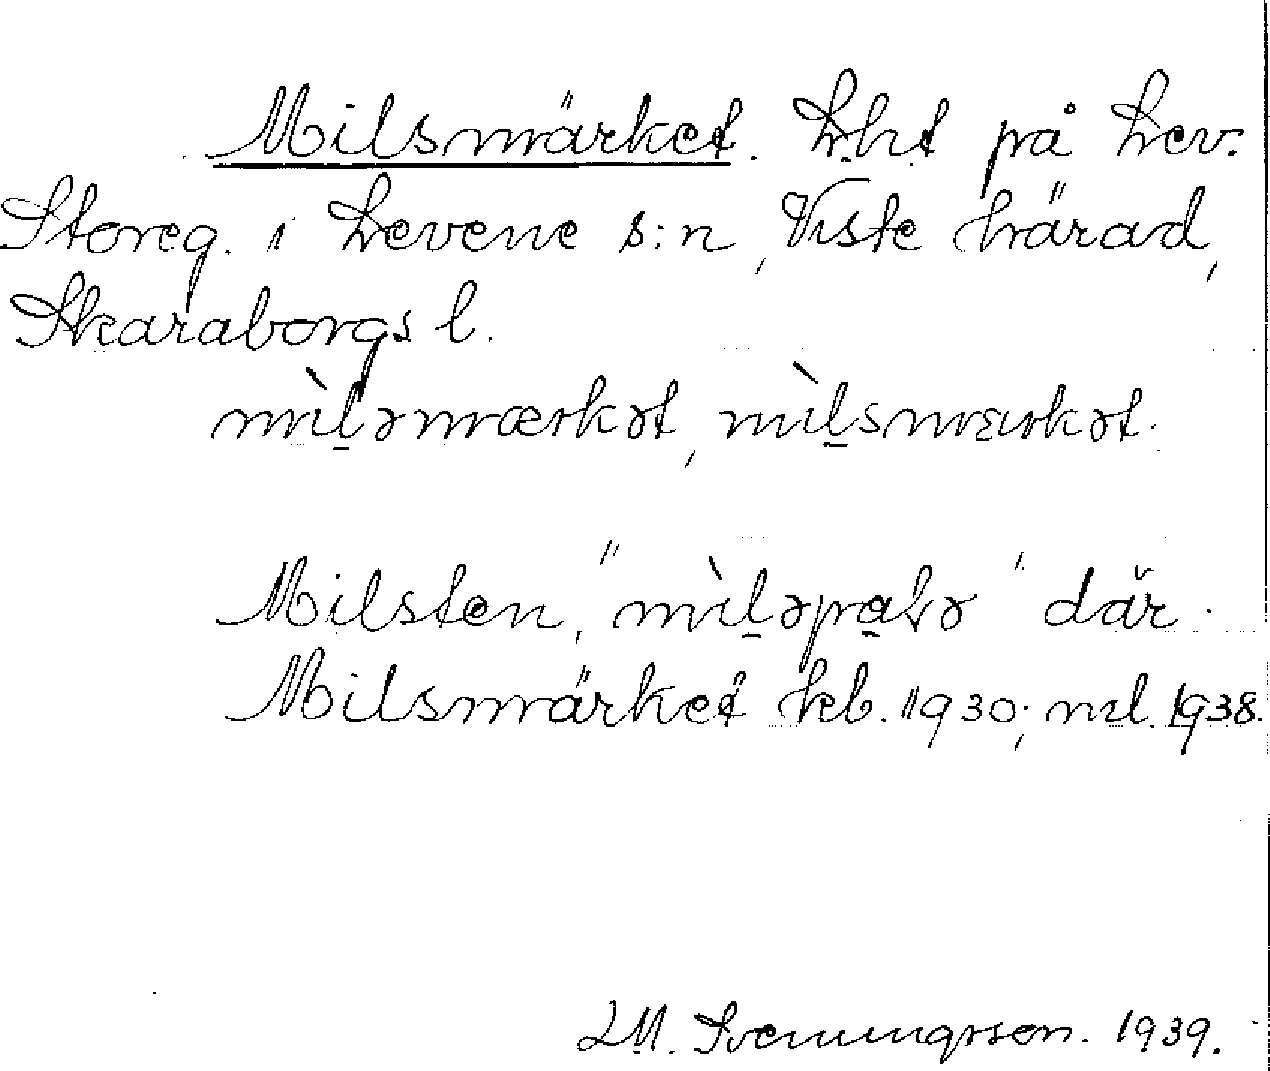 Milsmärket. Lht på Lev.
Storeg. i Levene s:n, Viste härad,
Skaraborgs l.
mìlǝmærkǝt, mìlsmærkǝt.
Milsten, "mìlǝpalǝ" där.
Milsmärket kb. 1930; ml. 1938.
LM. Svenungsson. 1939.